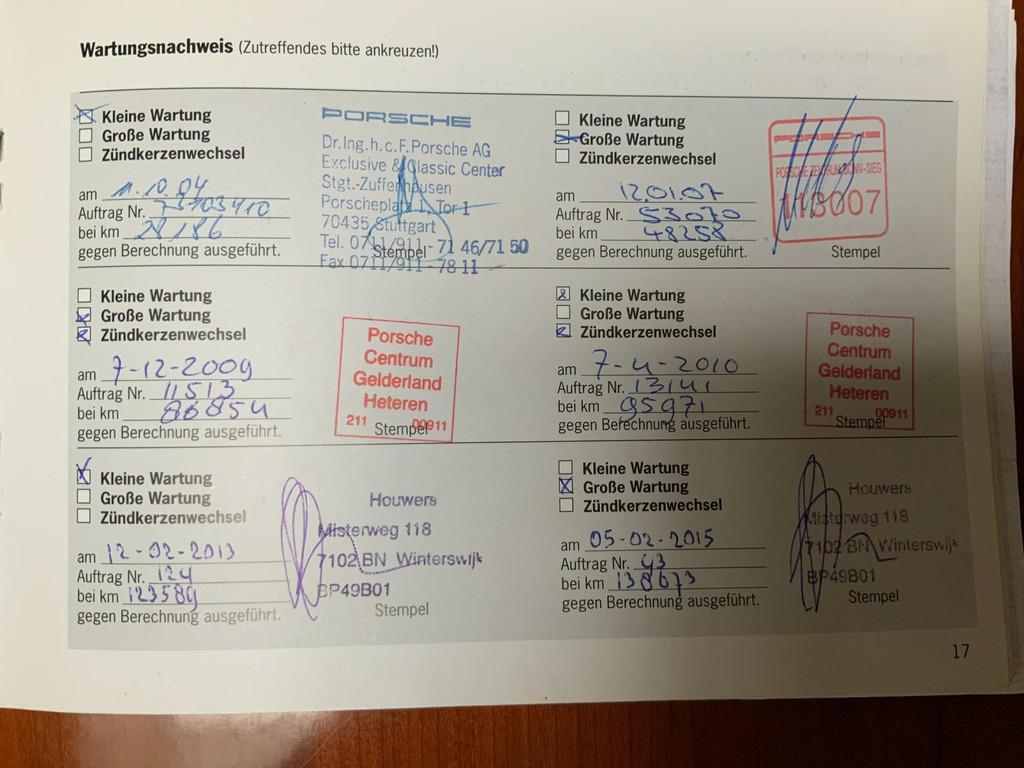 Wartungsnachweis (Zutreffendes bitte ankreuzen!)
Kleine Wartung
Große Wartung
Zündkerzenwechsel
am 11.10.04
Auftrag Nr.
bei km 28186
gegen Berechnung ausgeführt.
PORSCHE
Dr.Ing.h.c.F.Porsche AG
Exclusive & Classic Center
Stgt.-Zuffenhausen
Porscheplatz 1, Tor 1
70435 Stuttgart
Tel. 0711/911-71 46/71 50
Stempel
Fax 0711/911-78 11
Kleine Wartung
Große Wartung
Zündkerzenwechsel
am 12.01.07
Auftrag Nr. 53070
bei km 48258
gegen Berechnung ausgeführt.
PORSCHE
PORSCHE ZENTRUM BONN-SIEG
Stempel
Kleine Wartung
Große Wartung
Zündkerzenwechsel
am 7-12-2009
Auftrag Nr. 11513
bei km 86854
gegen Berechnung ausgeführt.
Porsche
Centrum
Gelderland
Heteren
211 00911
Stempel
Kleine Wartung
Große Wartung
Zündkerzenwechsel
am 7-4-2010
Auftrag Nr. 13141
bei km 95971
gegen Berechnung ausgeführt.
Porsche
Centrum
Gelderland
Heteren
211 00911
Stempel
Kleine Wartung
Große Wartung
Zündkerzenwechsel
am 12-02-2013
Auftrag Nr. 124
bei km 123589
gegen Berechnung ausgeführt.
Houwers
Misterweg 118
7102 BN Winterswijk
BP49B01
Stempel
Kleine Wartung
Große Wartung
Zündkerzenwechsel
am 05-02-2015
Auftrag Nr. 43
bei km 138673
gegen Berechnung ausgeführt.
Houwers
Misterweg 118
7102 BN Winterswijk
BP49B01
Stempel
17